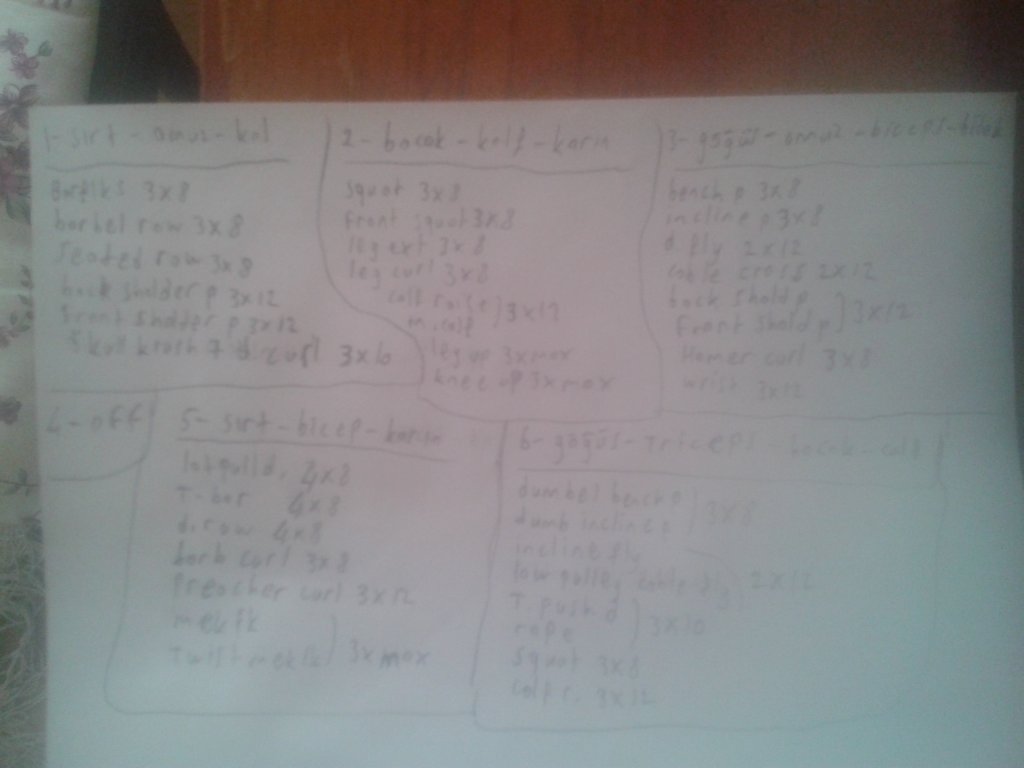 1- sırt - omuz - kol
Barfiks 3x8
barbel row 3x8
Seated row 3x8
back sholder p 3x12
front sholder p 3x12
d curl 3x10
2- bacak - kalf - karın
squat 3x8
front squat 3x8
leg ext 3x8
leg curl 3x8
calf raise
m. calf 3x12
leg up 3xmax
knee up 3xmax
3- göğüs - omuz - biceps - bilek
bench p 3x8
incline p 3x8
d. fly 2x12
cable cross 2x12
back shold p
front shold p 3x12
Hamer curl 3x8
wrist 3x12
4- off
5- sırt - bicep - karın
lat pull d. 4x8
T-bar 4x8
d. row 4x8
barb curl 3x8
Preacher curl 3x12
mekik
Twist mekik 3xmax
6- göğüs - Triceps - bacak - calf
dumbel bench p
dumb incline p 3x8
incline fly
low pulley cable fly 2x12
T. push d
rope 3x10
squat 3x8
calf r. 3x12